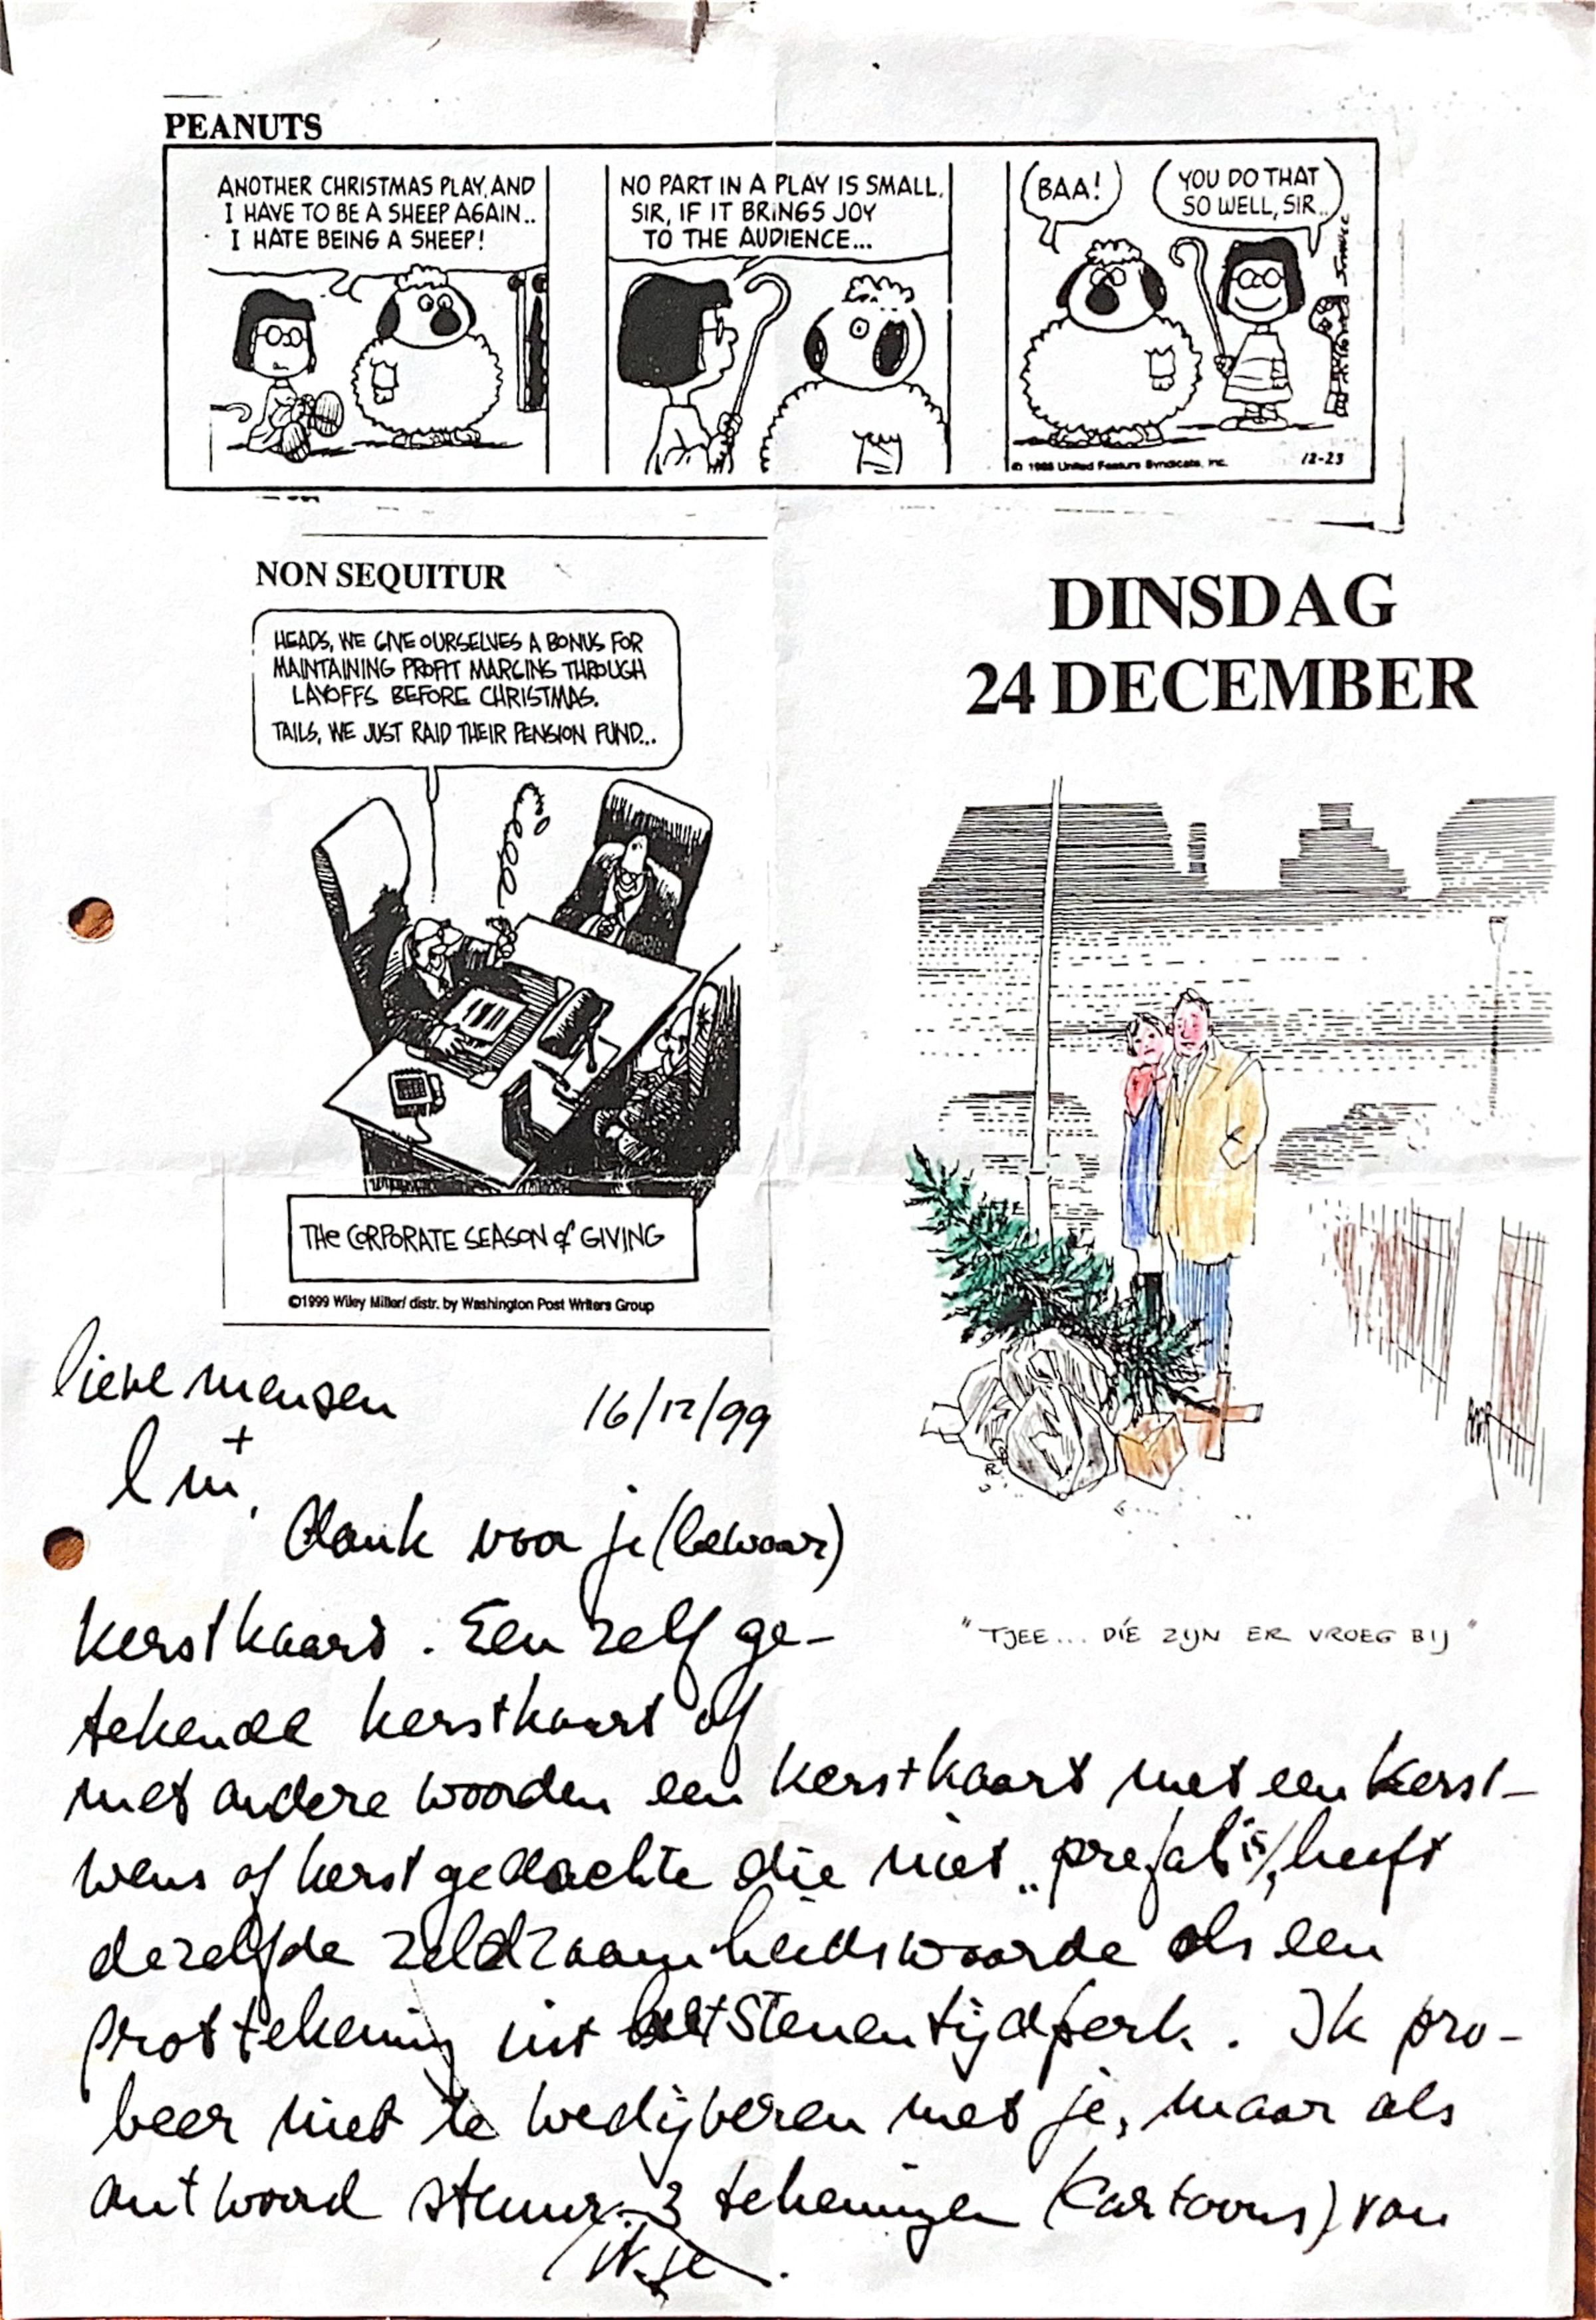 PEANUTS
ANOTHER CHRISTMAS PLAY, AND
I HAVE TO BE A SHEEP AGAIN..
I HATE BEING A SHEEP!
NO PART IN A PLAY IS SMALL,
SIR, IF IT BRINGS JOY
TO THE AUDIENCE...
BAA!
YOU DO THAT
SO WELL, SIR..
United Feature Syndicate, Inc.
12-23
NON SEQUITUR
HEADS, WE GIVE OURSELVES A BONUS FOR
MAINTAINING PROFIT MARGINS THROUGH
LAYOFFS BEFORE CHRISTMAS.
TAILS, WE JUST RAID THEIR PENSION FUND...
THE CORPORATE SEASON of GIVING
©1999 Wiley Miller/ distr. by Washington Post Writers Group
DINSDAG
24 DECEMBER
"TJEE... DÍE ZIJN ER VROEG BIJ"
lieve mensen
16/12/99
dank voor je (bewaar)
kerstkaart. Een zelf ge-
tekende kerstkaart of
met andere woorden een kerstkaart met een kerst-
wens of kerstgedachte die niet „prefab" is, heeft
dezelfde zeldzaamheidswaarde als een
grottekening uit het Stenentijdperk. Ik pro-
beer niet te wedijveren met je, maar als
antwoord stuur 3 tekeningen (Cartoons) van
ik je